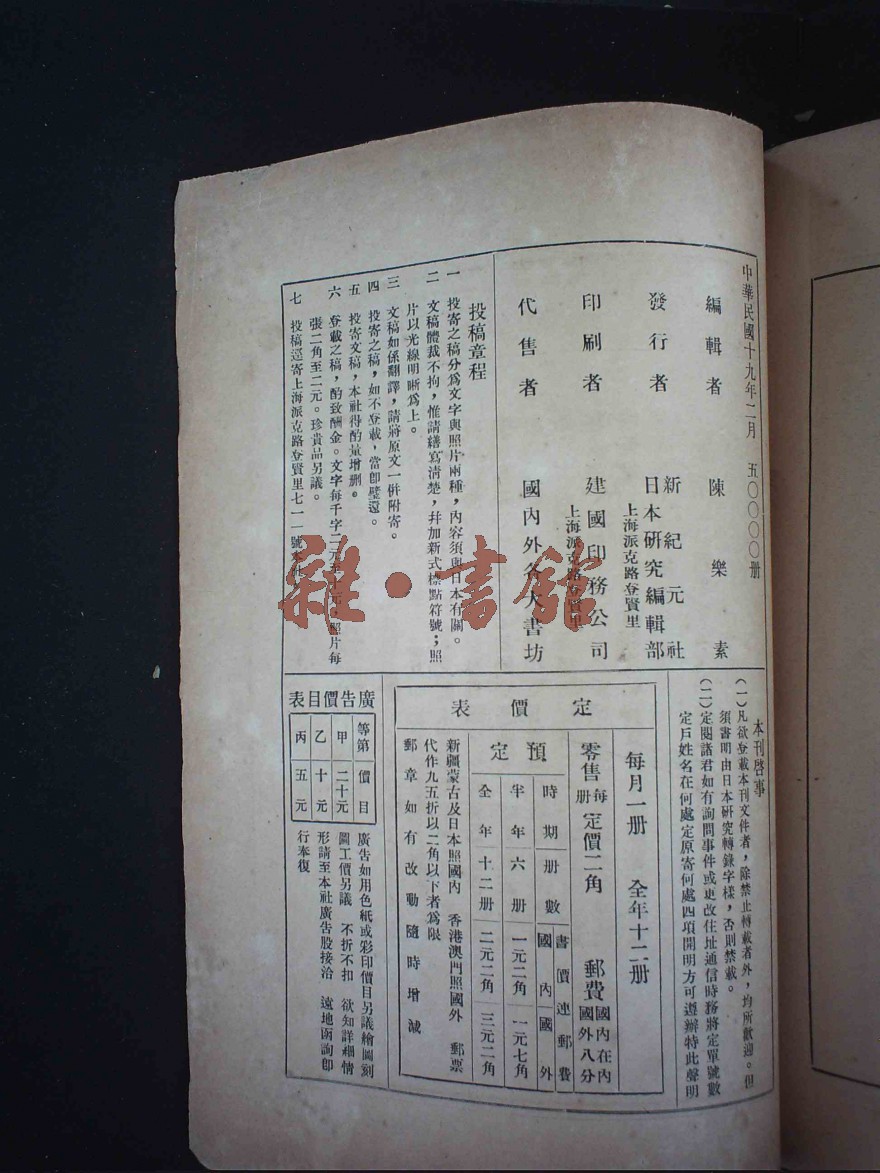 中華民國十九年二月　五〇〇〇〇册
編輯者　陳樂素
發行者　新紀元社
日本研究編輯部
上海派克路登賢里
印刷者　建國印務公司
上海派克路登賢里
代售者　國內外各大書坊
投稿章程
一　投寄之稿分爲文字與照片兩種，內容須與日本有關。
二　文稿體裁不拘，惟請繕寫淸楚，幷加新式標點符號；照
片以光線明晰爲上。
三　文稿如係翻譯，請將原文一併附寄。
四　投寄之稿，如不登載，當卽璧還。
五　投寄文稿，本社得酌量增删。
六　登載之稿，酌致酬金。文字每千字二元至十元，照片每
張二角至二元。珍貴品另議。
七　投稿逕寄上海派克路登賢里七一一號本社
本刊啓事
（一）凡欲登載本刊文件者，除禁止轉載者外，均所歡迎。但
須書明由日本研究轉錄字樣，否則禁載。
（二）定閱諸君如有詢問事件或更改住址通信時務將定單號數
定戶姓名在何處定原寄何處四項開明方可遵辦特此聲明
定價表
每月一册　全年十二册
零售　每册　定價二角　郵費　國內在內　國外八分
預定
時期　册數　書價連郵費　國內　國外
半年　六册　一元二角　一元七角
全年　十二册　二元二角　三元二角
新疆蒙古及日本照國內　香港澳門照國外　郵票
代作九五折以二角以下者爲限
郵章如有改動隨時增減
廣告價目表
等第　價目
甲　二十元
乙　十元
丙　五元
廣告如用色紙或彩印價目另議繪圖刻
圖工價另議　不折不扣　欲知詳細情
形請至本社廣告股接洽　遠地函詢卽
行奉復
雜·書館